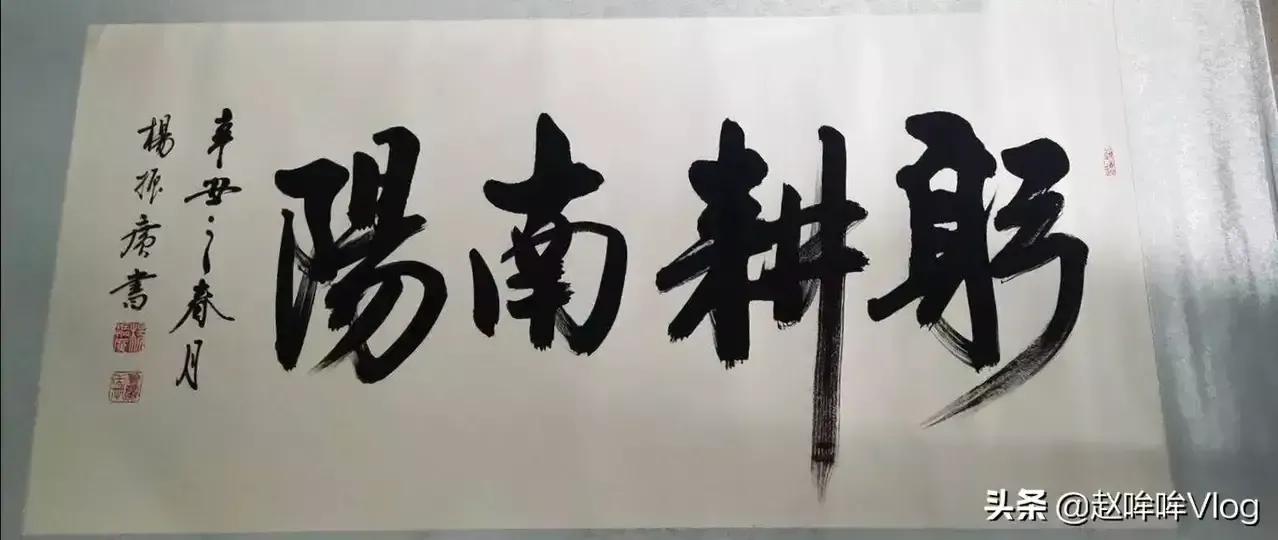 躬耕南陽
辛丑之春月
楊振廣書
头条@赵哞哞Vlog